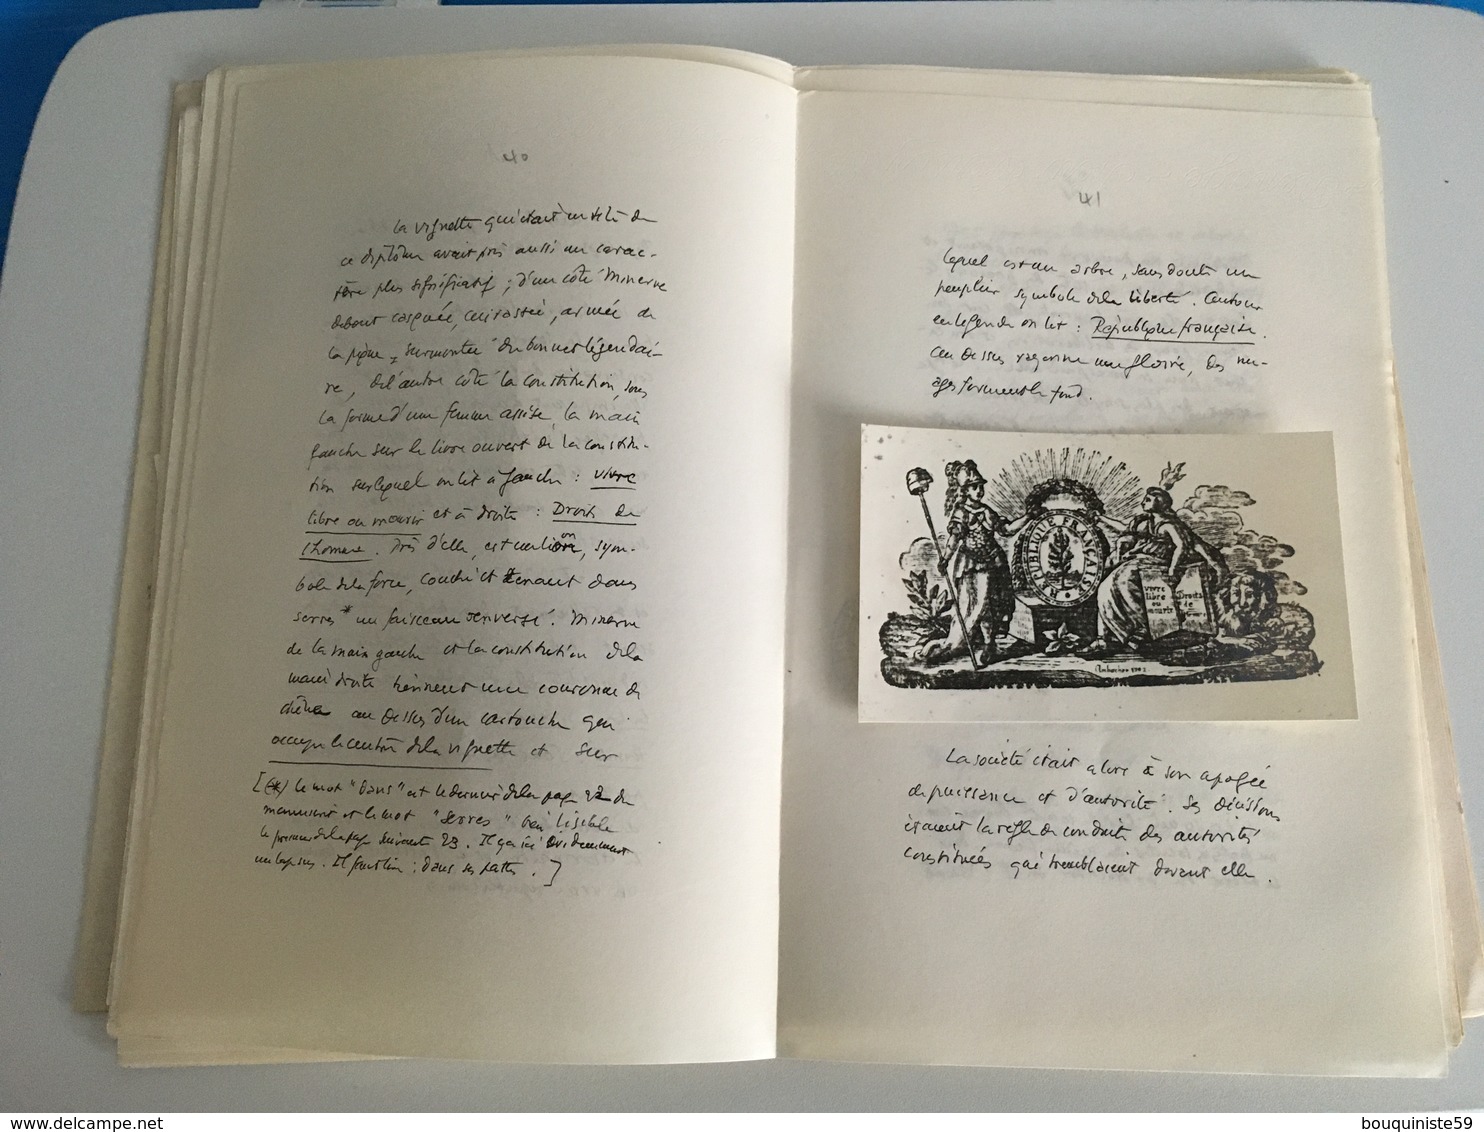 40
La vignette qui était en tête de
ce diplôme avait pris aussi un carac-
tère plus significatif ; d'un côté Minerve
debout casquée, cuirassée, armée de
la pique, surmontée du bonnet légendai-
re, de l'autre côté la constitution, sous
la forme d'une femme assise, la main
gauche sur le livre ouvert de la constitu-
tion sur lequel on lit à gauche : vivre
libre ou mourir et à droite : Droits de
l'homme. Près d'elle, est un lion, sym-
bole de la force, couché et tenant dans
serres * un faisceau renversé. Minerve
de la main gauche et la constitution de la
main droite tiennent une couronne de
chêne au dessus d'un cartouche qui
occupe le centre de la vignette et sur
[(*) le mot "dans" est le dernier de la page 22 du
manuscrit et le mot "serres" bien lisible
le premier de la page suivante 23. Il y a ici évidemment
un lapsus. Il faut lire : dans ses pattes.]
41
lequel est un arbre, sans doute un
peuplier symbole de la liberté. Autour
en légende on lit : République française.
Au dessus rayonne une gloire, des nu-
ages forment le fond.
RÉPUBLIQUE FRANÇAISE
vivre libre ou mourir
Droits de l'homme
La société était alors à son apogée
de puissance et d'autorité. Ses décisions
étaient la règle de conduite des autorités
constituées qui tremblaient devant elle.
delcampe.net
bouquiniste59